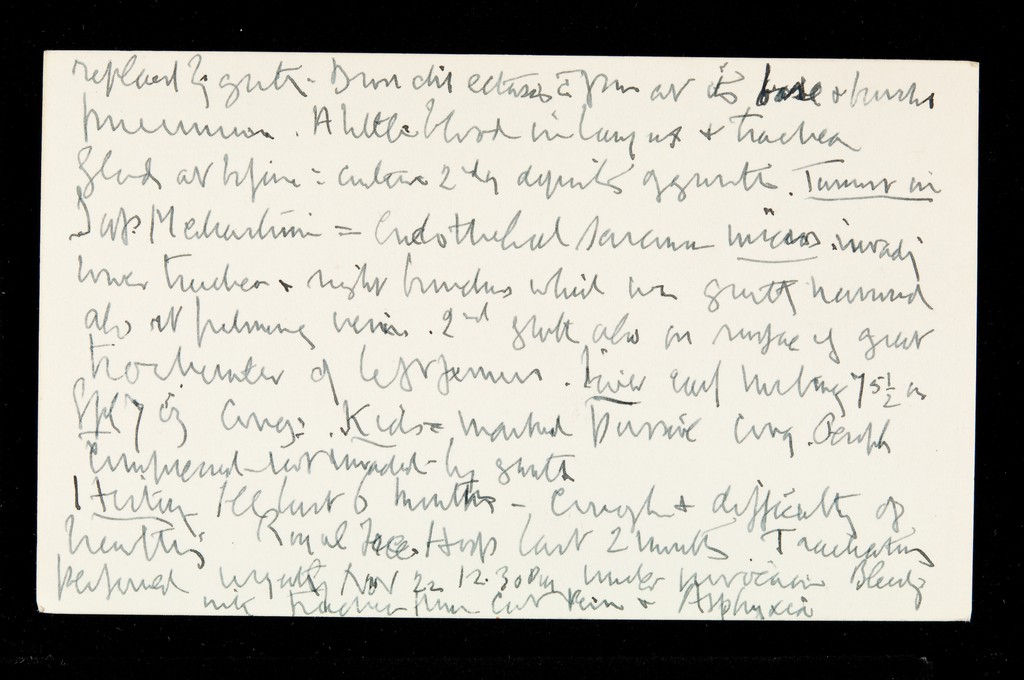 replaced by growth - Bronchiectases c̄ pus at its base & broncho
pneumonia. A little blood in larynx & trachea
Glands at = 2 dy deposits of growth. Tumour in
Sup Mediastinum = Endothelial sarcoma micros. invadg
lower trachea & right bronchus which was greatly narrowed
also at pulmonary veins. 2nd growth also on surface of great
trochanter of left femur. Liver early nutmeg 75½ oz
Spl 7 oz Cong. Kids = marked Passive Cong. Oesoph
compressed - not invaded - by growth
History Ill last 6 months - Cough & difficulty of
breathing Royal Free Hosp last 2 months. Tracheotomy
performed urgently Nov 22 12.30 under novocain Bleedg
into trachea from cut vein & Asphyxia